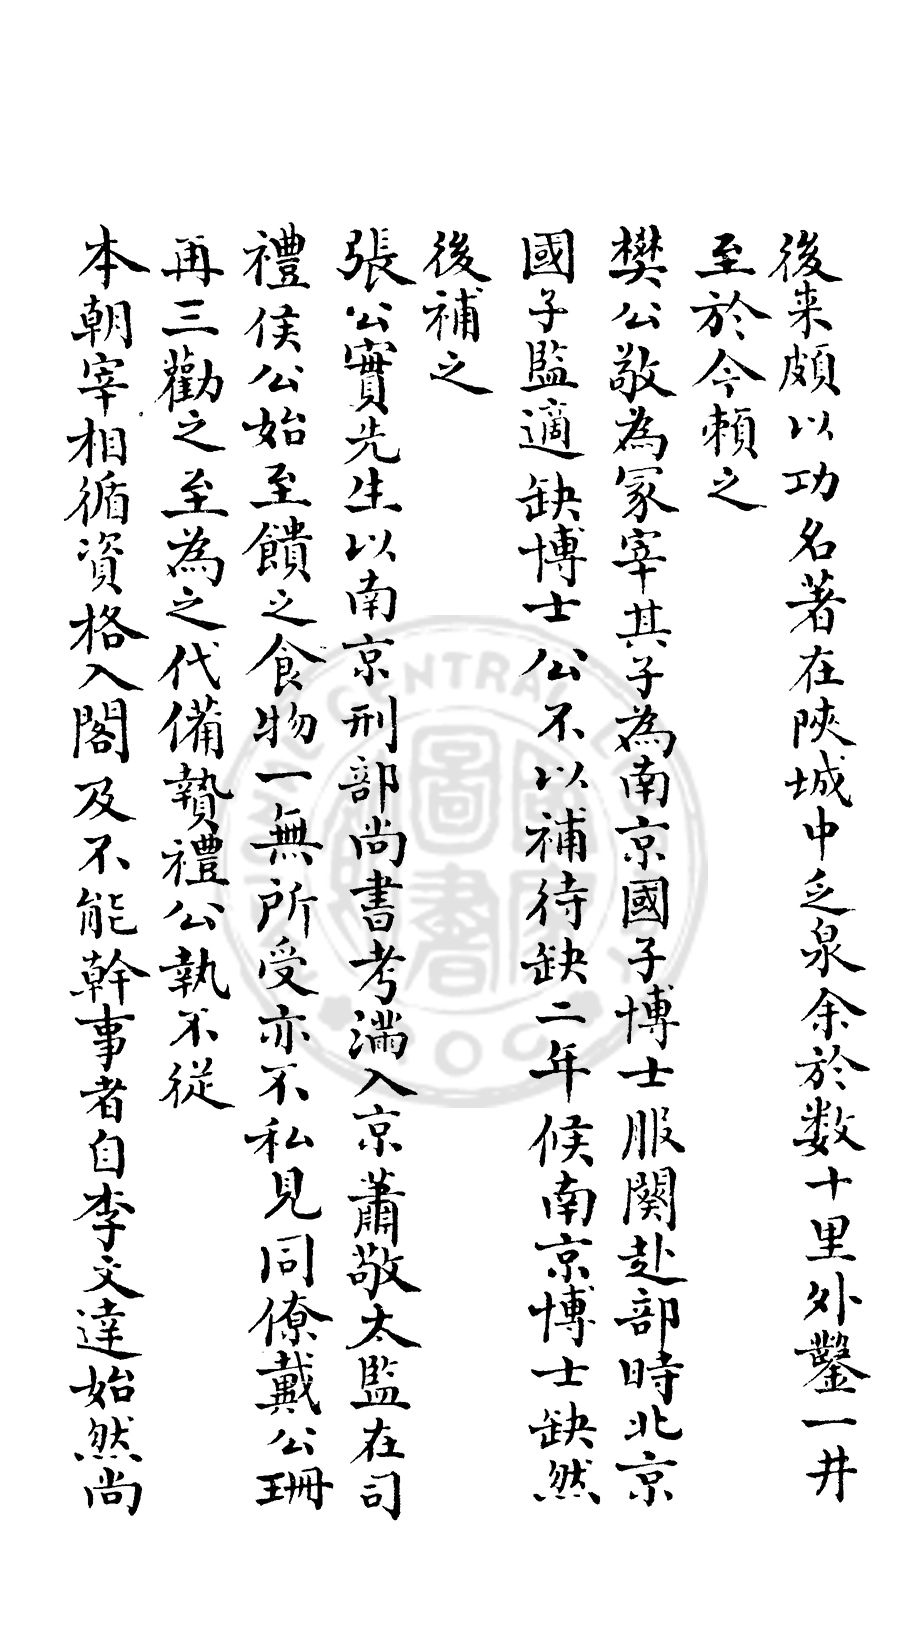 後来頗以功名著在陜城中乏泉余於数十里外鑿一井
至於今頼之
樊公敬為冢宰其子為南京國子博士服闋赴部時北京
國子監適缺博士公不以補待缺二年候南京博士缺然
後補之
張公實先生以南京刑部尚書考滿入京蕭敬太監在司
禮侯公始至饋之食物一無所受亦不私見同僚戴公珊
再三勸之至為之代備贄禮公執不従
本朝宰相循資格入閣及不能幹事者自李文達始然尚